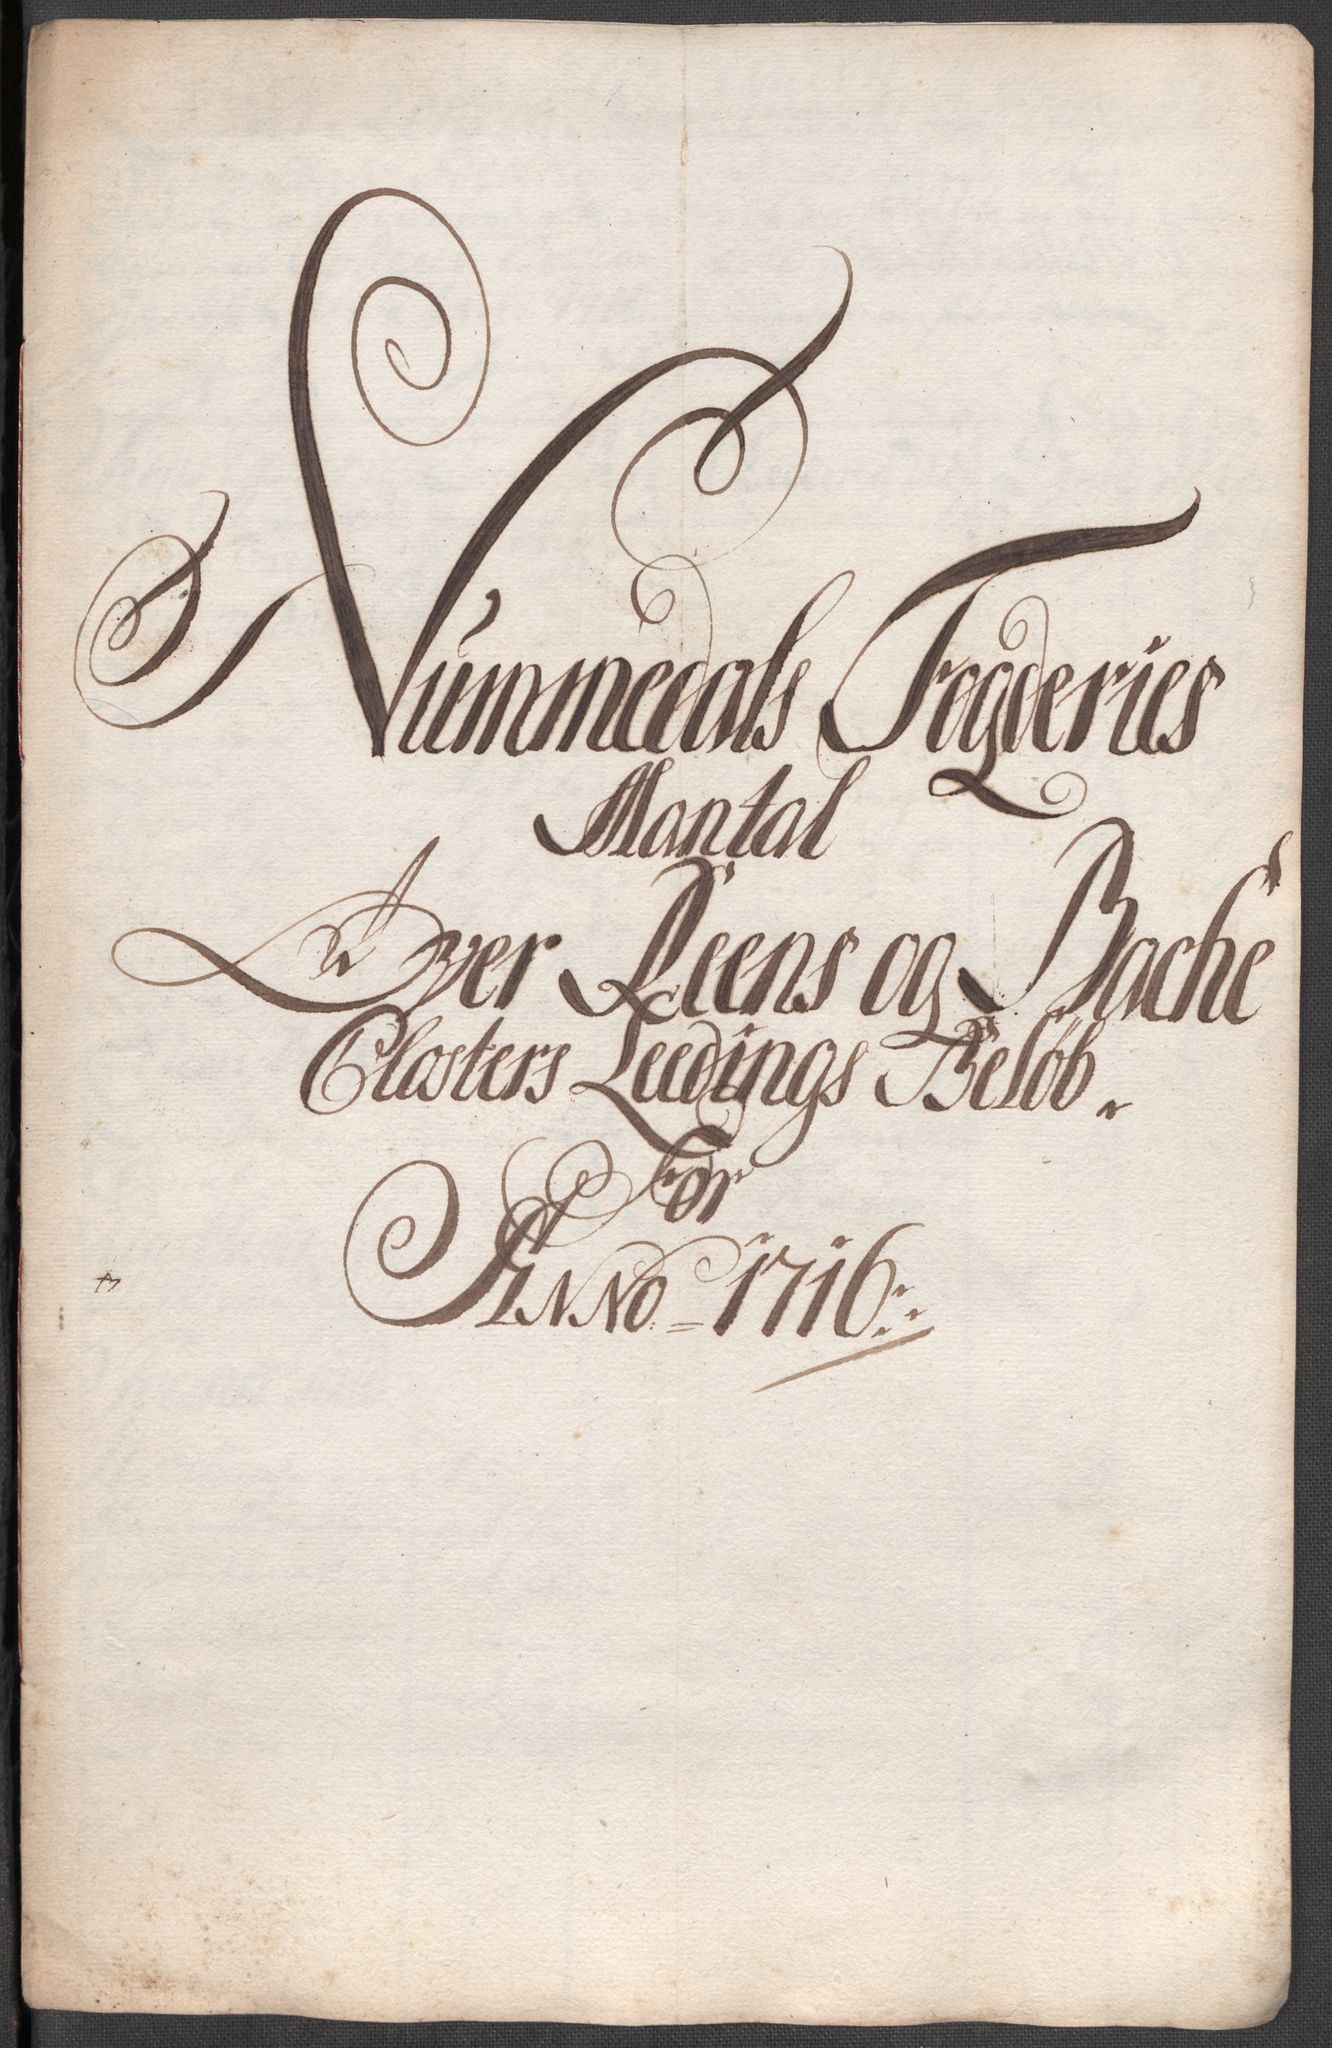 Nummedals Fogderies
Mantal
Over Reens og Bache
Closters Leedings Beløb.
For
ANNO = 1716.